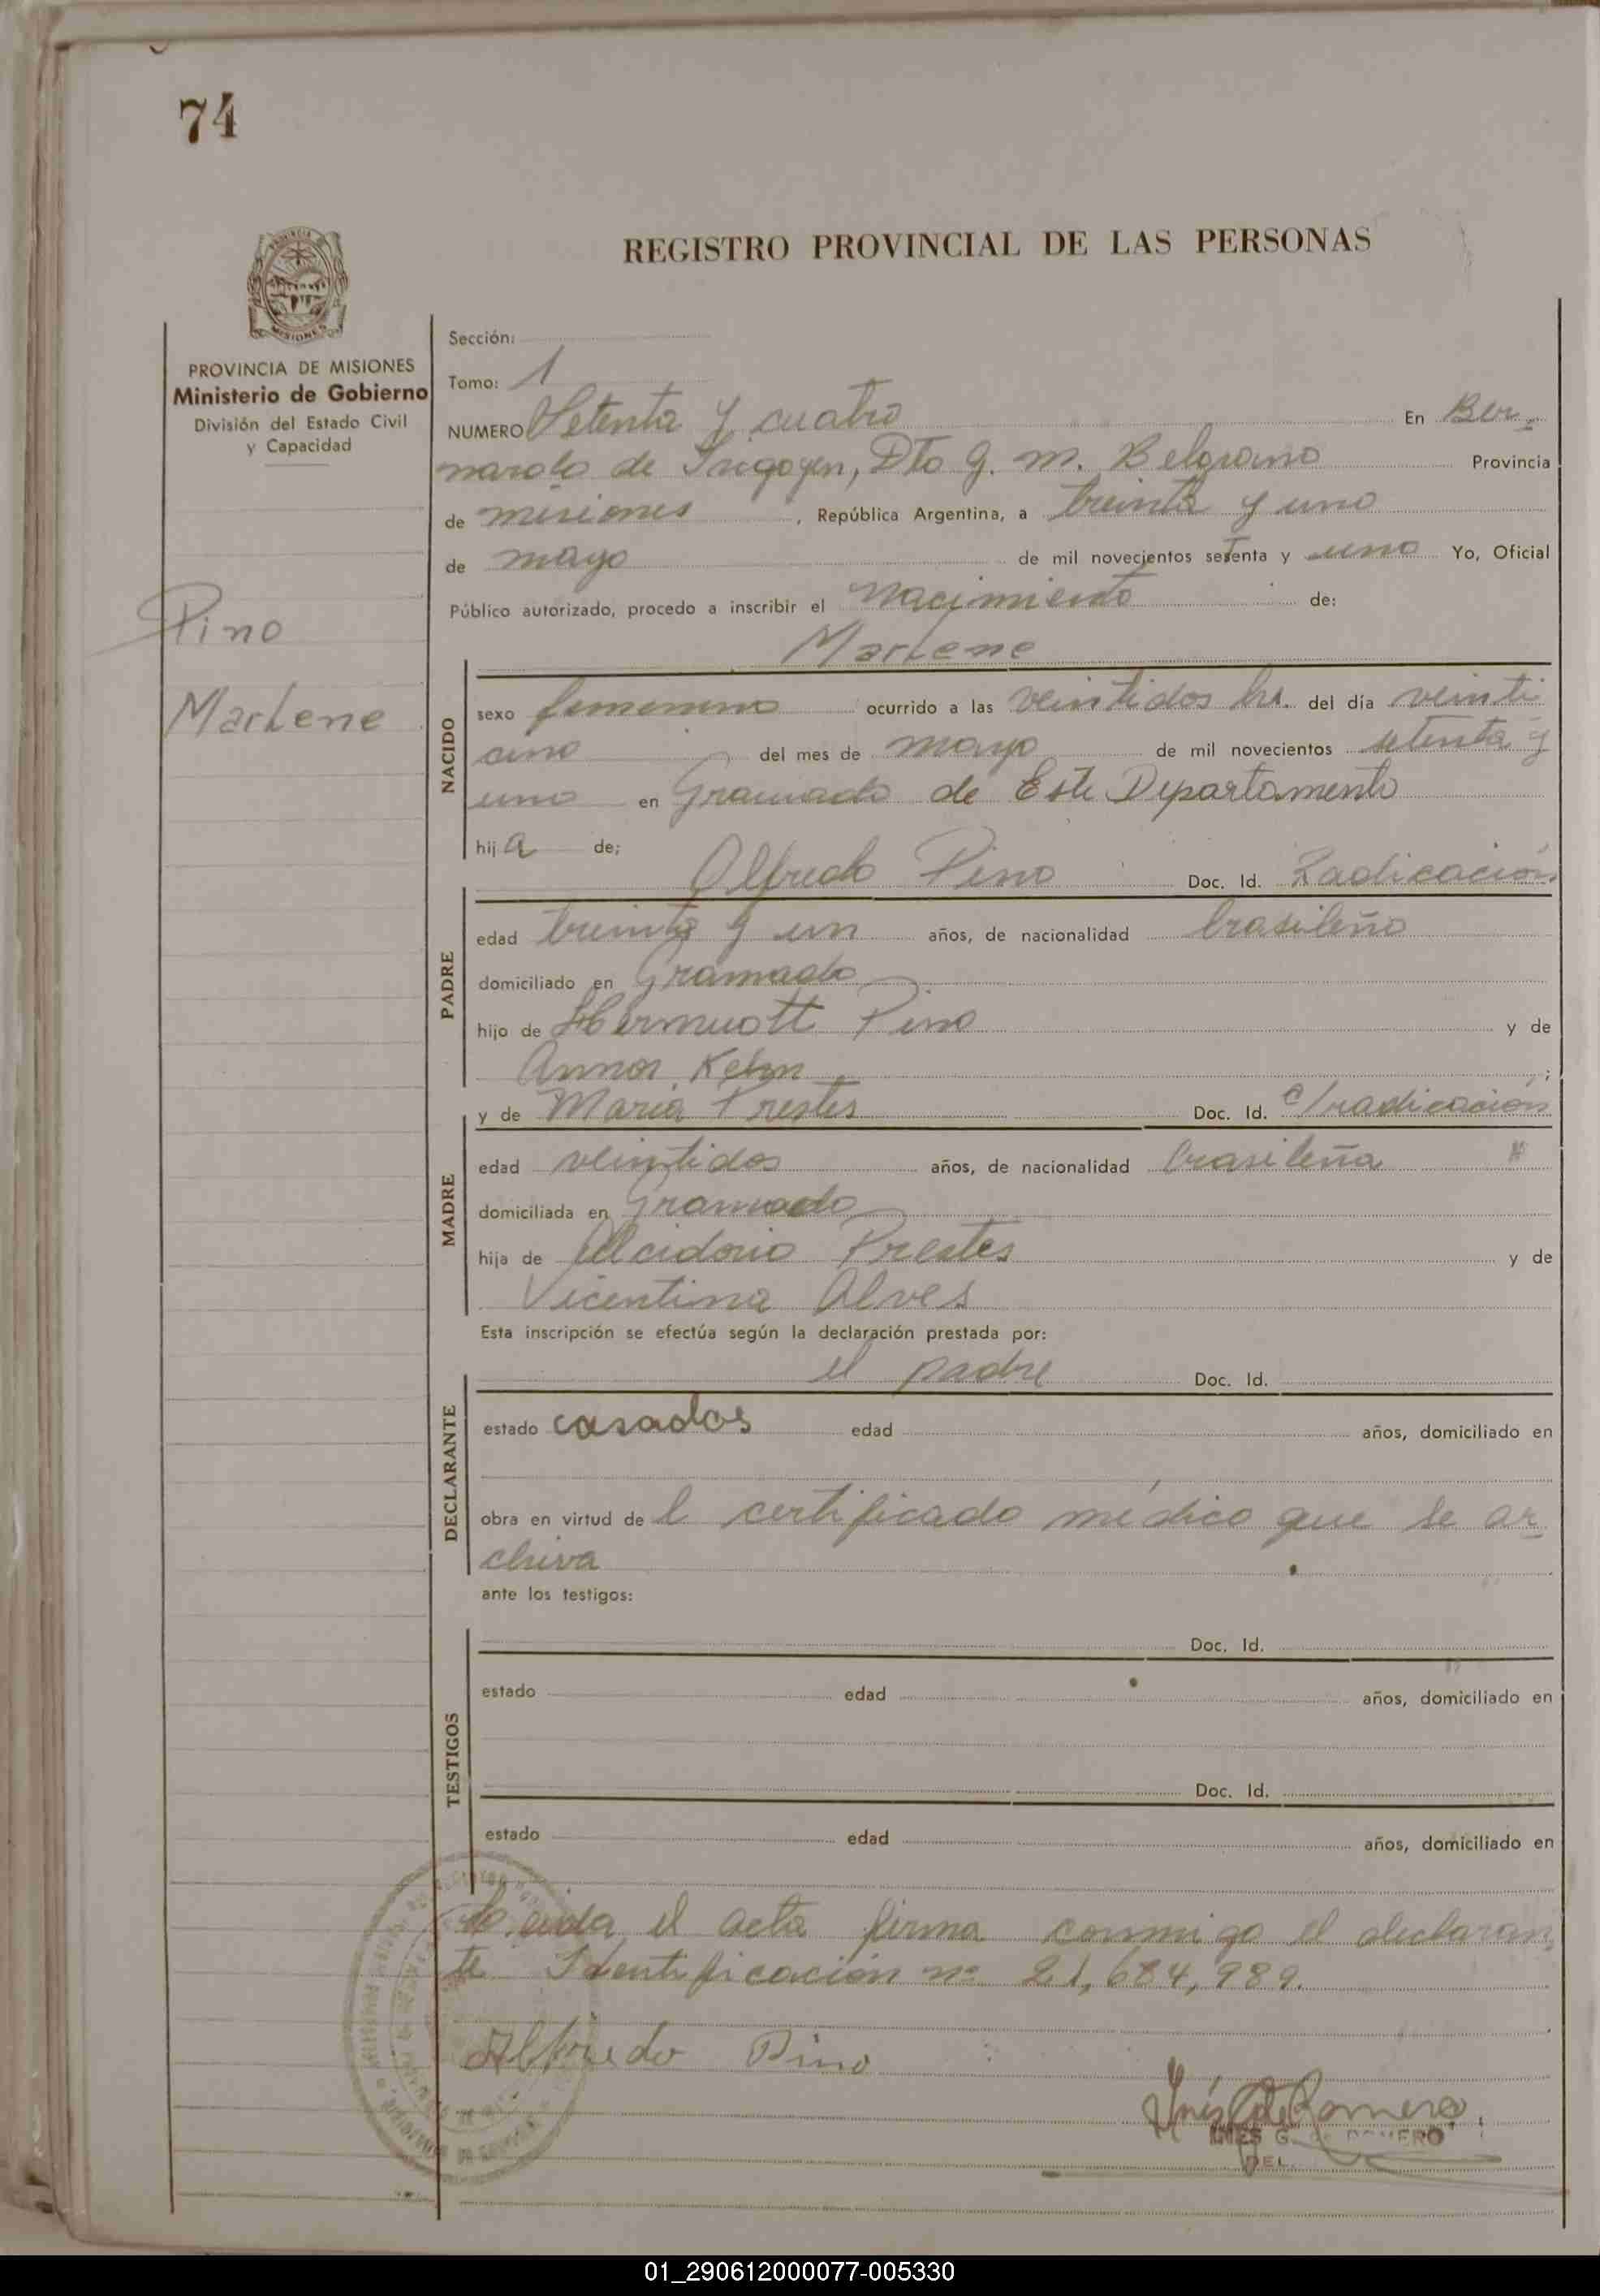 74
REGISTRO PROVINCIAL DE LAS PERSONAS
MISIONES
PROVINCIA DE MISIONES
Ministerio de Gobierno
División del Estado Civil
y Capacidad
Pino
Marlene
Sección:
Tomo: 1
NUMERO Setenta y cuatro En Ber-
nardo de Irigoyen, Dto G. M. Belgrano Provincia
de misiones, República Argentina, a treinta y uno
de mayo de mil novecientos setenta y uno Yo, Oficial
Público autorizado, procedo a inscribir el nacimiento de:
Marlene
NACIDO
sexo femenino ocurrido a las veintidos hs. del día veinti
cinco del mes de mayo de mil novecientos setenta y
uno en Gramado de Este Departamento
hija de;
Alfredo Pino Doc. Id. Radicación
PADRE
edad treinta y un años, de nacionalidad brasileño
domiciliado en Gramado
hijo de Pino y de
Anna Kelm;
y de Maria Prestes Doc. Id. c/radicación
MADRE
edad veintidos años, de nacionalidad brasileña
domiciliada en Gramado
hija de Prestes y de
Vicentina Alves
Esta inscripción se efectúa según la declaración prestada por:
el padre Doc. Id.
DECLARANTE
estado casados edad años, domiciliado en
obra en virtud de l certificado médico que se ar-
chiva
ante los testigos:
Doc. Id.
TESTIGOS
estado edad años, domiciliado en
Doc. Id.
estado edad años, domiciliado en
Leida el acta firma conmigo el declaran
te Identificación nº 21,684,989.
Alfredo Pino
Inés G. de Romero
INES G. de ROMERO
DEL.
01_290612000077-005330